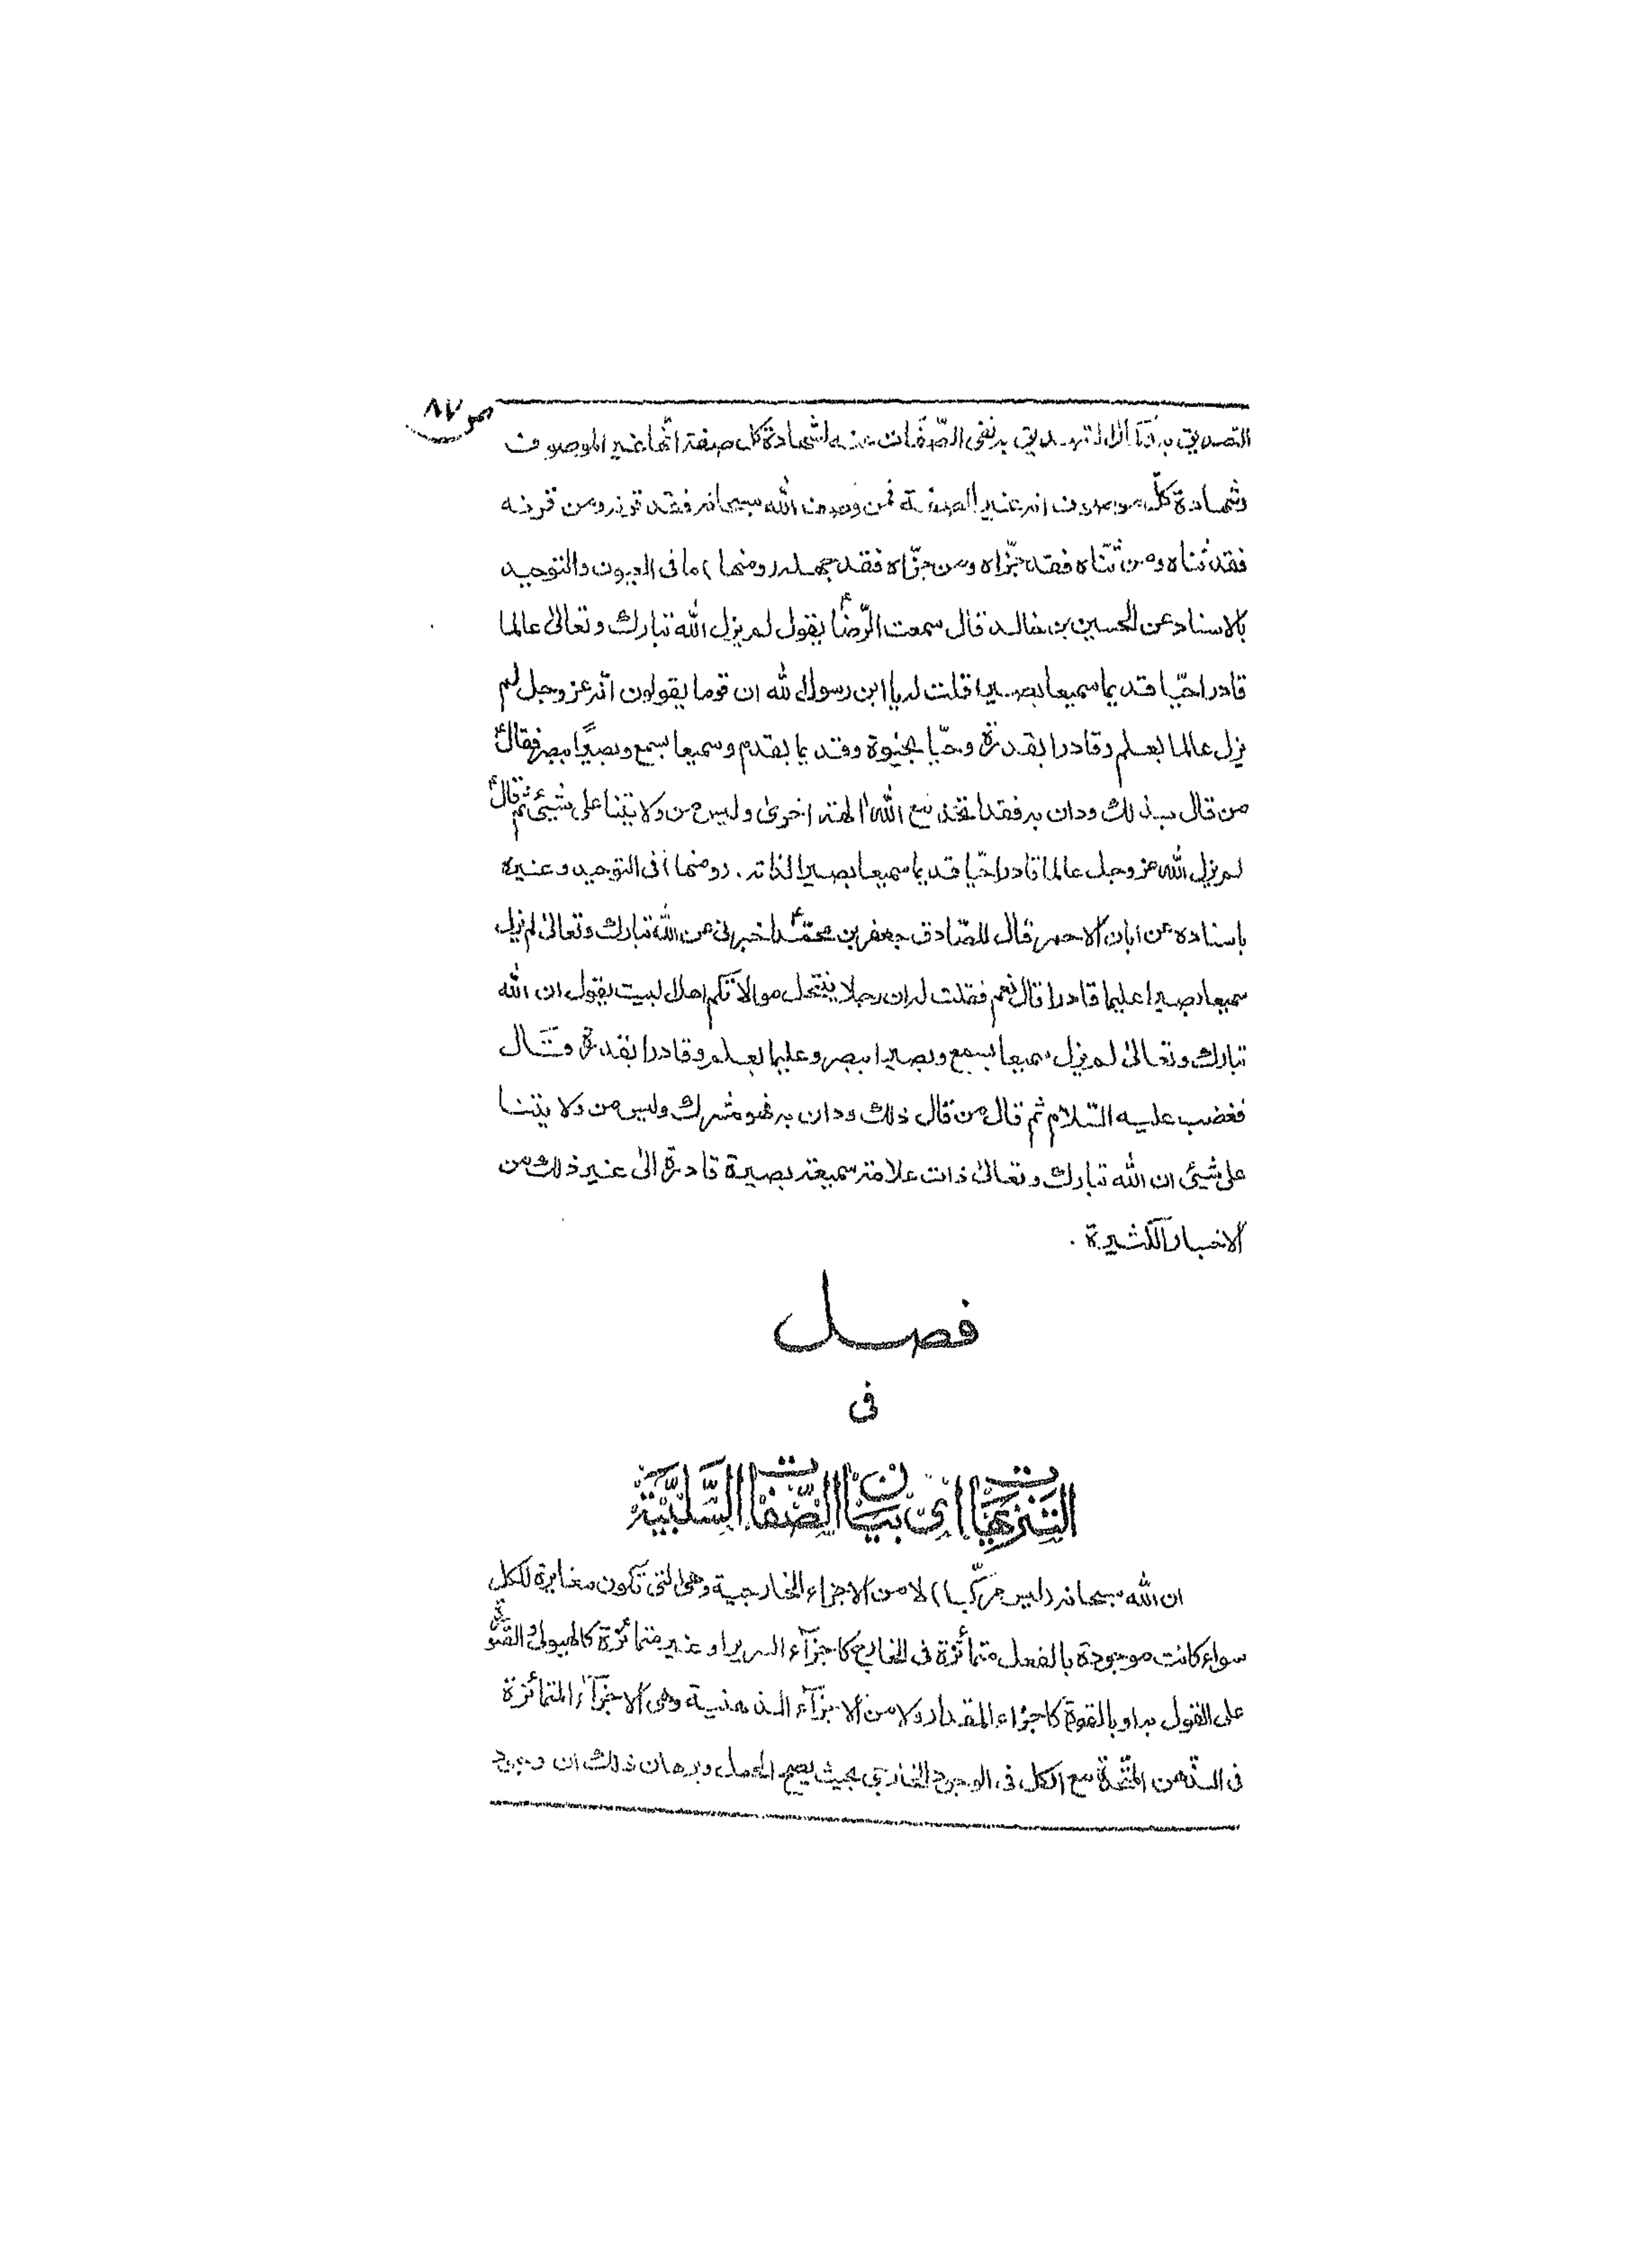 ص ٨٧
التصديق به وكمال التصديق به نفى الصّفات عنه لشهادة كل صفة انّها غير الموصوف
وشهادة كلّ موصوف انه غير الصفة فمن وصف الله سبحانه فقد قرنه ومن قرنه
فقد ثناه ومن ثنّاه فقد جزّاه ومن جزّاه فقد جهله (ومنها) ما فى العيون والتوحيد
بالاسناد عن الحسين بن خالد قال سمعت الرّضاء يقول لم يزل الله تبارك وتعالىٰ عالما
قادرا حيّا قديما سميعا بصيرا قلت له يا ابن رسول الله ان قوما يقولون انّه عز وجل لم
يزل عالما بعلم وقادرا بقدرة وحيّا بحيوة وقديما بقدم وسميعا بسمع وبصيرًا ببصر فقالء
من قال بذلك ودان به فقد اتخذ مع الله الهة اخرىٰ وليس من ولايتنا على شيئ ثم قالء
لم يزل الله عز وجل عالما قادرا حيّا قديما سميعا بصيرا لذاته . (ومنها) فى التوحيد وغيره
باسناده عن ابان الاحمر قال للصّادق جعفر بن محمّدء اخبرنى عن الله تبارك وتعالىٰ لم يزل
سميعا بصيرا عليما قادرا قال نعم فقلت له ان رجلا ينتحل موالاتكم اهل البيت يقول ان الله
تبارك وتعالىٰ لم يزل سميعا بسمع وبصيرا ببصر وعليما بعلم وقادرا بقدرة وقال
فغضب عليه السّلام ثم قال من قال ذلك ودان به فهو مشرك وليس من ولايتنا
على شيئ ان الله تبارك وتعالىٰ ذات علامة سميعة بصيرة قادرة الىٰ غير ذلك من
الاخبار الكثيرة .
فصل
فى
التنزيهات اى بيان الصّفات السّلبيّة
ان الله سبحانه (ليس مركّبا) لا من الاجزاء الخارجية وهى التى تكون مغايرة للكل
سواء كانت موجودة بالفعل متمائزة فى الخارج كاجزآء السرير او غير متمائزة كالهيولى والصّورة
على القول به او بالقوة كاجزاء المقدار ولا من الاجزآء الذهنية وهى الاجزآء المتمائزة
فى الذهن المتّحدة مع الكل فى الوجود الخارجى بحيث يصح الحمل وبرهان ذلك ان وجود